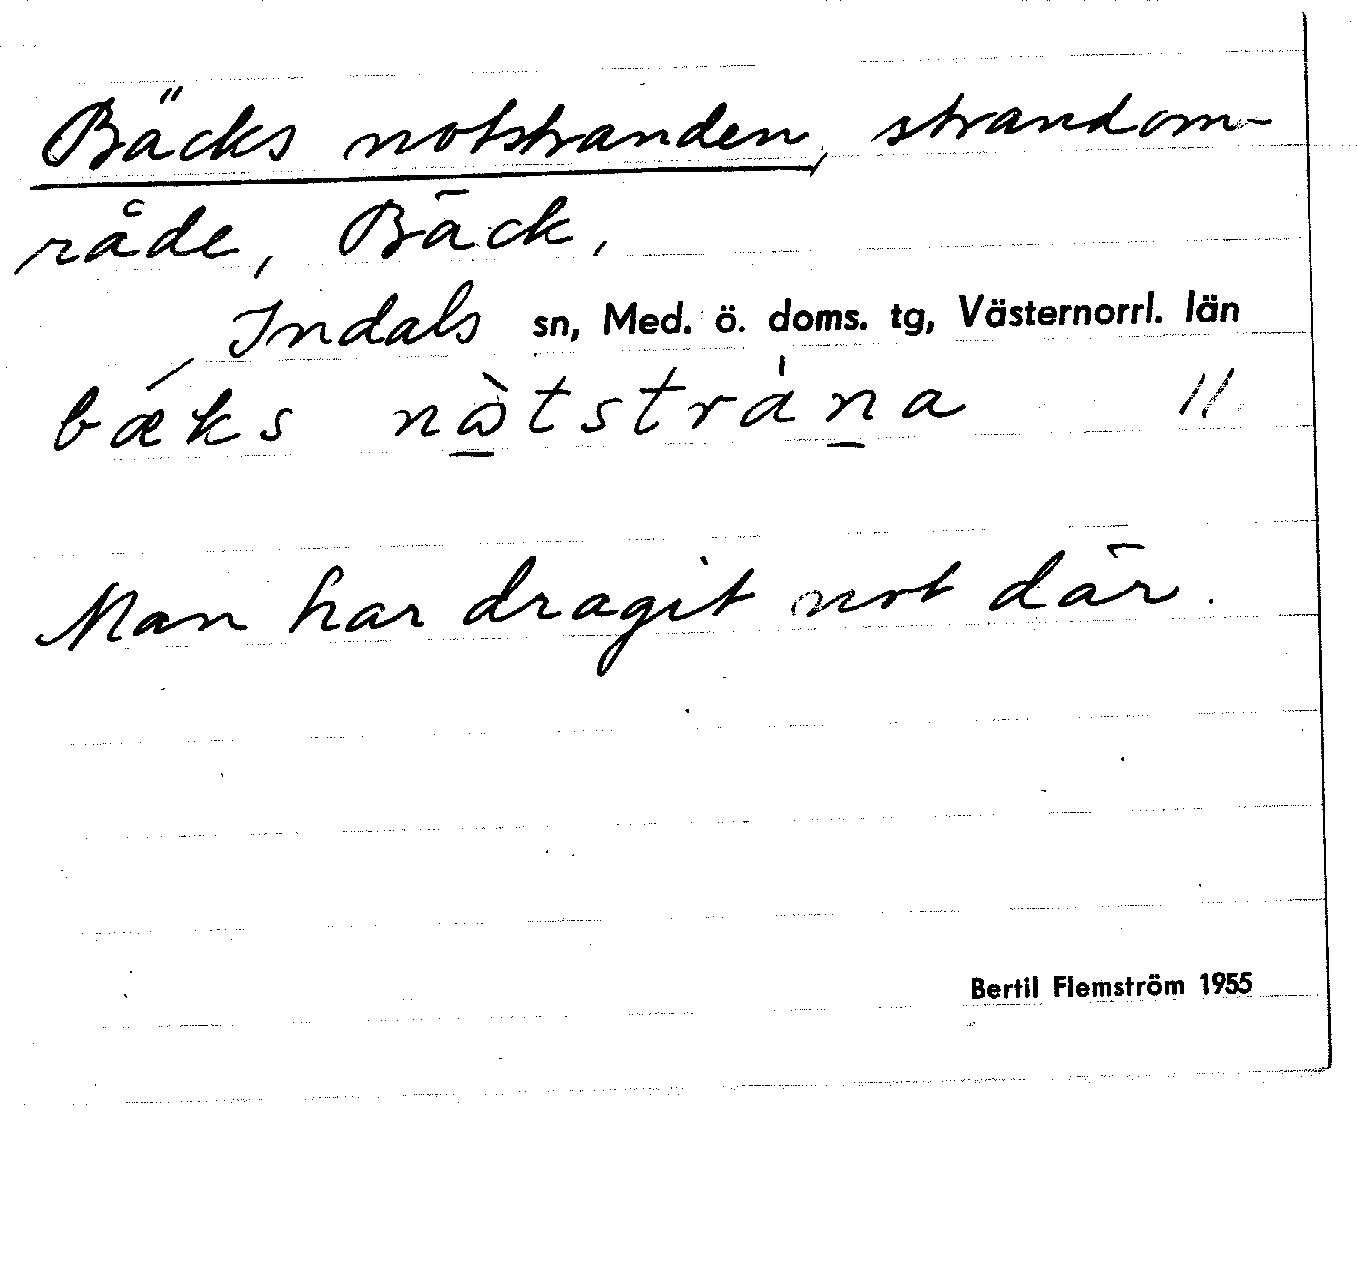 Bäcks notstranden, strandom-
råde, Bäck,
Indals sn, Med. ö. doms. tg, Västernorrl. län
bǽks nὼ̲tstrán̲a 11
Man har dragit not där.
Bertil Flemström 1955